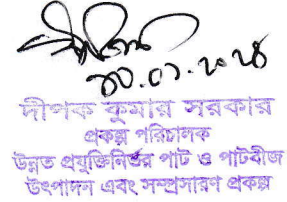 ৩০.০১.২০২৪
দীপক কুমার সরকার
প্রকল্প পরিচালক
উন্নত প্রযুক্তিনির্ভর পাট ও পাটবীজ
উৎপাদন এবং সম্প্রসারণ প্রকল্প